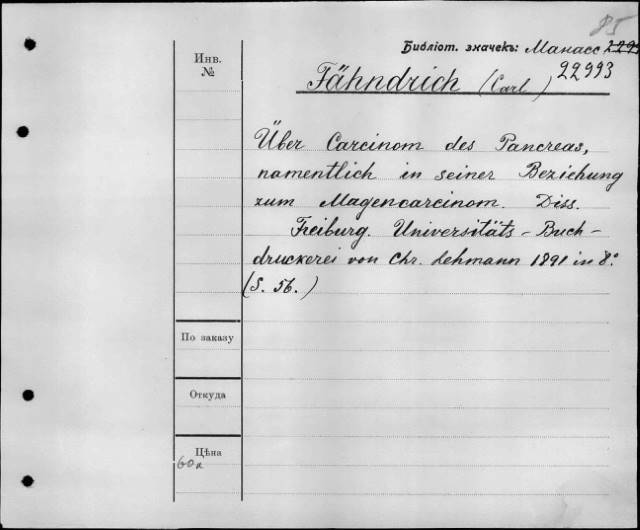 85
Библіот. значекъ: Манасс
Инв.
№
22993
Fähndrich (Carl)
Über Carcinom des Pancreas,
namentlich in seiner Beziehung
zum Magencarcinom. Diss.
Freiburg. Universitäts-Buch-
druckerei von Chr. Lehmann 1891 in 8°.
(S. 56.)
По заказу
Откуда
Цѣна
60к